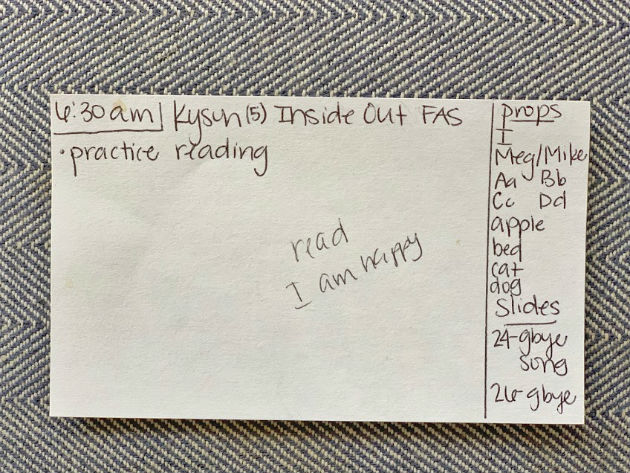 6:30am Kysen (5) Inside Out FAS
• practice reading
read
I am happy
props
I
Meg/Mike
Aa Bb
Cc Dd
apple
bed
cat
dog
Slides
24-gbye
song
26-gbye